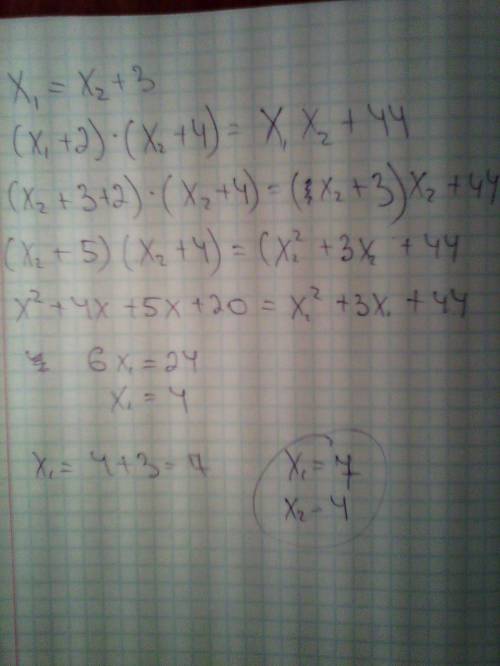 x₁ = x₂ + 3
(x₁ + 2) · (x₂ + 4) = x₁ x₂ + 44
(x₂ + 3 + 2) · (x₂ + 4) = (x₂ + 3) x₂ + 44
(x₂ + 5) (x₂ + 4) = (x₂² + 3x₂ + 44
x² + 4x + 5x + 20 = x₂² + 3x₁ + 44
6x₁ = 24
x₁ = 4
x₁ = 4 + 3 = 7
x₁ = 7
x₂ - 4